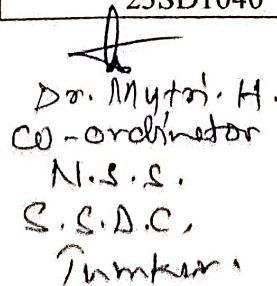 23SD1040
Dr. Mytri. H.
co-ordinator
N.S.S.
S.S.D.C,
Tumkur.